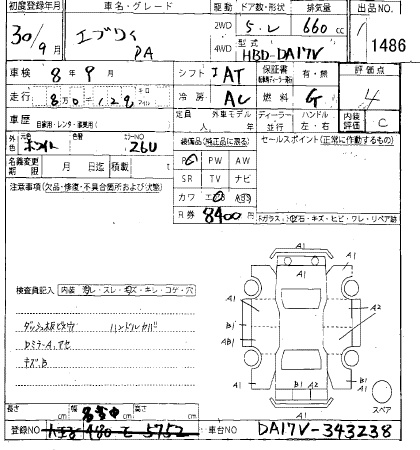 初度登録年月 車名・グレード 駆動 ドア数・形状 排気量 出品NO
30年9月 エブリイ PA 2WD 4WD 5.V 660cc
型式 HBD-DA17V 1486
車検 8年9月 シフト AT 保証書 有・無 評価点
走行 キロ マイル 冷房 AC 燃料 G 4
車歴 自家用・レンタ・事業用( ) 定員 人 外車モデル 年 ディーラー 並行 ハンドル 左・右 内装評価 C
外色 元色 ホワイト カラーNO Z6U 装備品(純正品に限る) セールスポイント(正常に動作するもの)
名義変更期限 月 日迄 積載 t PS PW AW
注意事項(欠品・修復・不具合箇所および状態) SR TV ナビ
カワ エアB
R券 8400円 Fガラス:(飛石・キズ・ヒビ・ワレ・リペア跡)
A1
A1 A1
検査員記入 内装 汚レ・スレ・キズ・キレ・コゲ・穴
A2
B1 B1
ダッシュ板ビス穴 ハンドルカバー
AB1 A2
DミラーA,アセ
キズ,B
A1 A1
B1 A2
A1
スペア
長さ cm 幅 名変中 cm 高さ cm
登録NO 八王子 480 て 5752 車台NO DA17V-343238